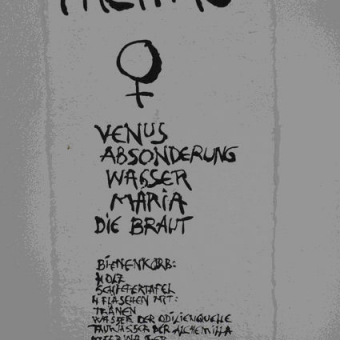 VENUS
ABSONDERUNG
WASSER
MARIA
DIE BRAUT
BIENENKORB:
HOLZ
SCHIEFERTAFEL
4 FLASCHEN MIT:
TRÄNEN
WASSER DER ODILIENQUELLE
TAUWASSER DER ALCHEMILLA